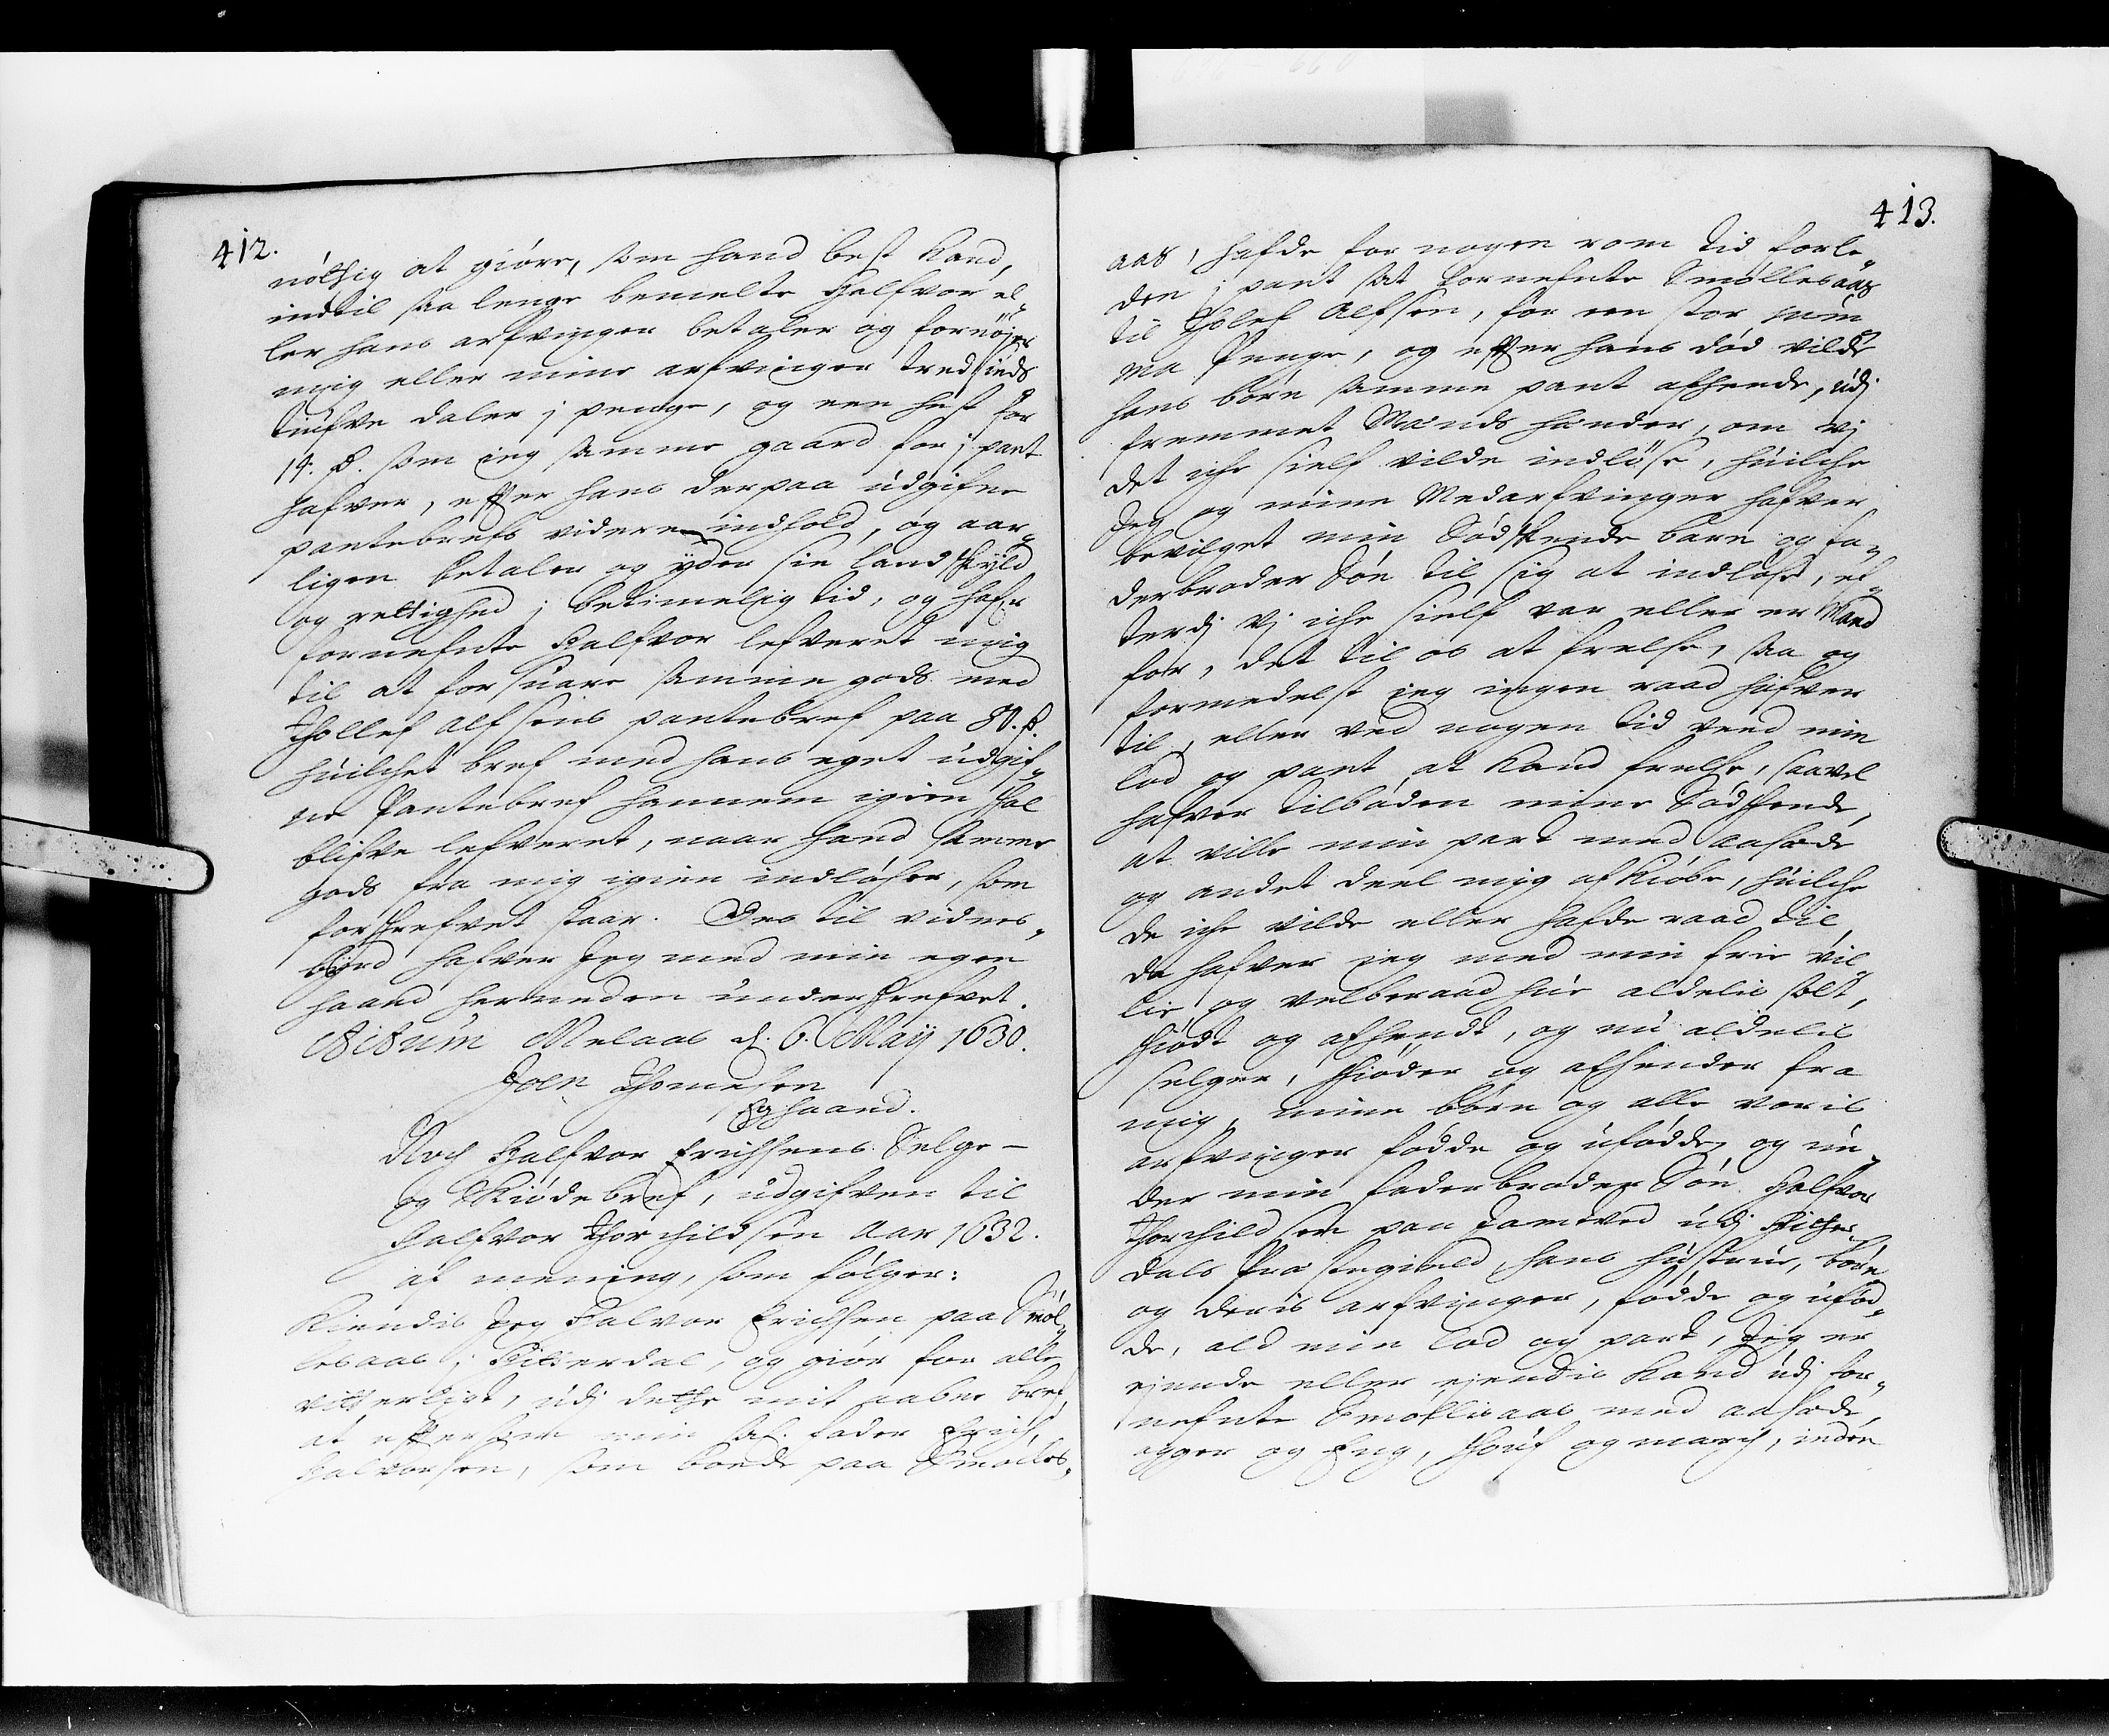 412.
nóthig at giöre, som hand best kand,
indtil saa lenge bemelte Halfvor el„
ler hans arfvinger betaler og fornöjer
mig eller mine arfvinger tredsinds
tiufve daler j penge, og een hest for
14. d. som jeg samme gaard for j pant
hafver, efter hans derpaa udgifne
pantebrefs videre indhold, og aar„
ligen betaler og yder sin landskyld
og rettighed j betimelig tid, og hafr
fornefnte Halfvor lefveret mig
til at forsuare samme gods med
Thollef Alfsens pantebref paa 80. d.
huilchet bref med hans eget udgif„
ne Pantebref hannem igien skal
blifve lefveret, naar hand samme
gods fra mig igien indlöser, som
forskrefvet staar. Des til vidnes„
byrd hafver Jeg med min egen
haand herneden underskrefvet.
Actum Melaas d. 6. Maij 1630.
Joen Thomesen
Eg haand.
Noch Halfvor Erichsens Selge-
og Skiödebref, udgifven til
Halfvor Thorchildsen Aar 1632.
af mening, som fölger:
Kiendis Jeg Halvor Erichsen paa Smöl„
lesaas j Hitterdal, og giör for alle
vitterligt, udj dette mit aabne bref,
at eftersom min Sal. fader Erich
Halvorsen, som boede paa Smölles„
413.
aas, hafde for nogen rom tid forle„
den j pant sat fornefnte Smöllesaas
til Tholef Alfsen, for een stor sum„
ma Penge, og efter hans död vilde
hans börn samme pant afhende, udj
fremmet Mands hender, om vj
det iche sielf vilde indlöse, huilche
Jeg og mine Medarfvinger hafver
bevilget min Södskende barn og fa„
derbroder Sön til sig at indlöse, ef„
terdj vj iche sielf var eller er Mand
for, det til os at frelse, saa og
formedelst jeg ingen raad hafver
til, eller ved nogen tid veed min
lod og part at kand frelse, saavel
hafver tilbøden mine Södskende,
at ville min part med aasæde
og andet deel mig afkiöbe, huilche
de iche vilde eller hafde raad til,
da hafver jeg med min frie vil„
lie og velberaad hue aldelis solt,
skiödt og afhendt, og nu aldelis
selger, skiöder og afhender fra
mig, mine börn og alle voris
arfvinger födde og uföddde, og un„
der min faderbroder Sön Halfvor
Thorchildsen paa Tomtved udj Hitter„
dals Præstegield, hans hustrue, börn
og deris arfvinger, födde og uföd„
de, ald min lod og part, Jeg er
ejende eller ejendis kand udj for„
nefnte Smöllisaas med aasæde,
agger og Eng, skouf og march, inden